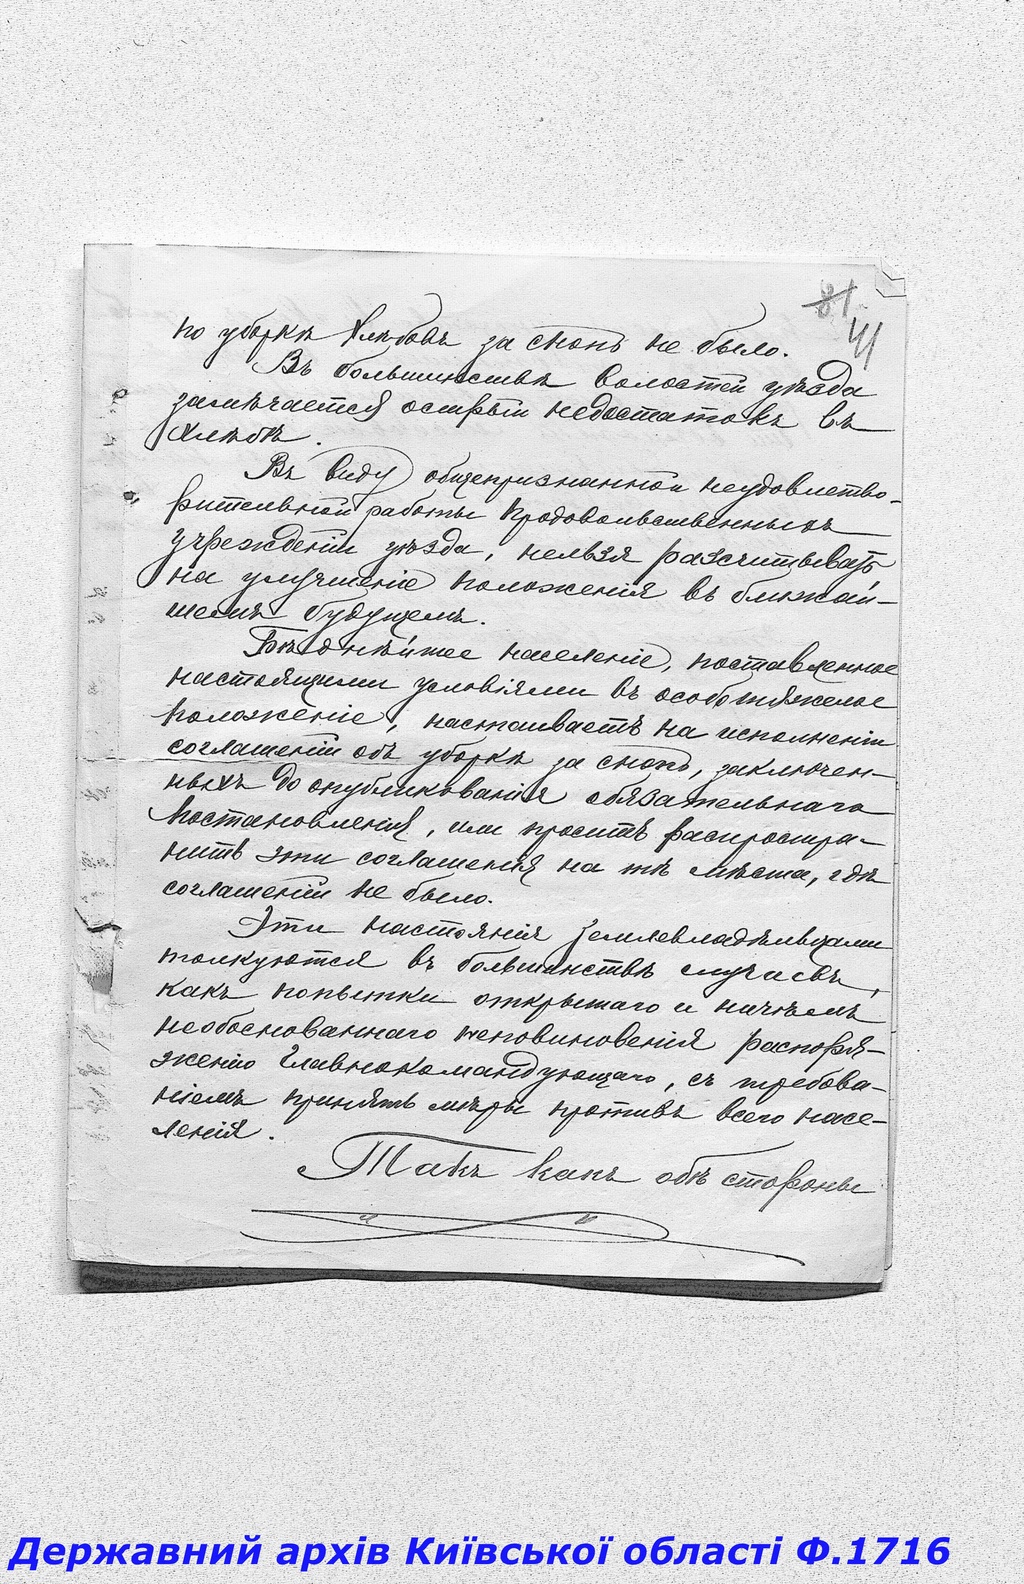 81
41
по уборкѣ хлѣбовъ за снопъ не было.
Въ большинствѣ волостей уѣзда
замѣчается острый недостатокъ въ
хлѣбѣ.
Въ виду общепризнанной неудовлетво-
рительной работы Продовольственныхъ
учрежденій уѣзда, нельзя разсчитывать
на улучшеніе положенія въ ближай-
шемъ будущемъ.
Бѣднѣйшее населеніе, поставленное
настоящими условіями въ особо тяжелое
положеніе, настаиваетъ на исполненіи
соглашеній объ уборкѣ за снопъ, заключен-
ныхъ до опубликованія обязательнаго
постановленія, или проситъ распростра-
нить эти соглашенія на тѣ мѣста, гдѣ
соглашеній не было.
Эти настоянія землевладѣльцами
толкуются въ большинствѣ случаевъ,
какъ попытки открытаго и ничѣмъ
необоснованнаго неповиновенія распоря-
женію Главнокомандующаго, съ требова-
ніемъ принять мѣры противъ всего насе-
ленія.
Такъ какъ обѣ стороны
Державний архів Київської області Ф.1716